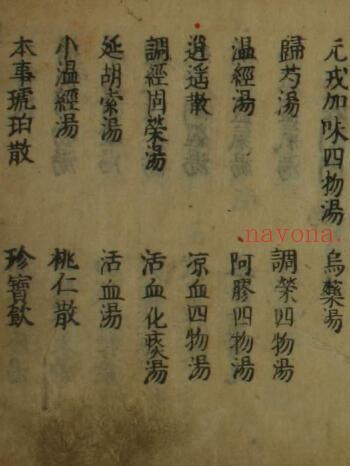 元戎加味四物湯 烏藥湯
歸芍湯 調榮四物湯
温經湯 阿膠四物湯
逍遥散 凉血四物湯
調經固榮湯 活血化痰湯
延胡索湯 活血湯
小温經湯 桃仁散
本事琥珀散 珍寶飲
nayona.